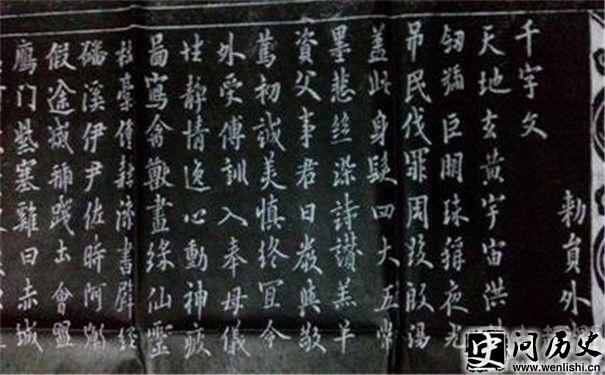 勅員外
千字文
天地玄黃宇宙洪
劒號巨闕珠稱夜光
吊民伐罪周發殷湯
蓋此身髮四大五常
墨悲絲染詩讃羔羊
資父事君曰嚴與敬
篤初誠美慎終宜令
外受傅訓入奉母儀
性靜情逸心動神疲
啚寫禽獸畫綵仙靈
杜稾鍾隸漆書壁經
磻溪伊尹佐時阿衡
假途滅虢踐土會盟
鴈門紫塞雞田赤城
问历史
www.wenlishi.cn